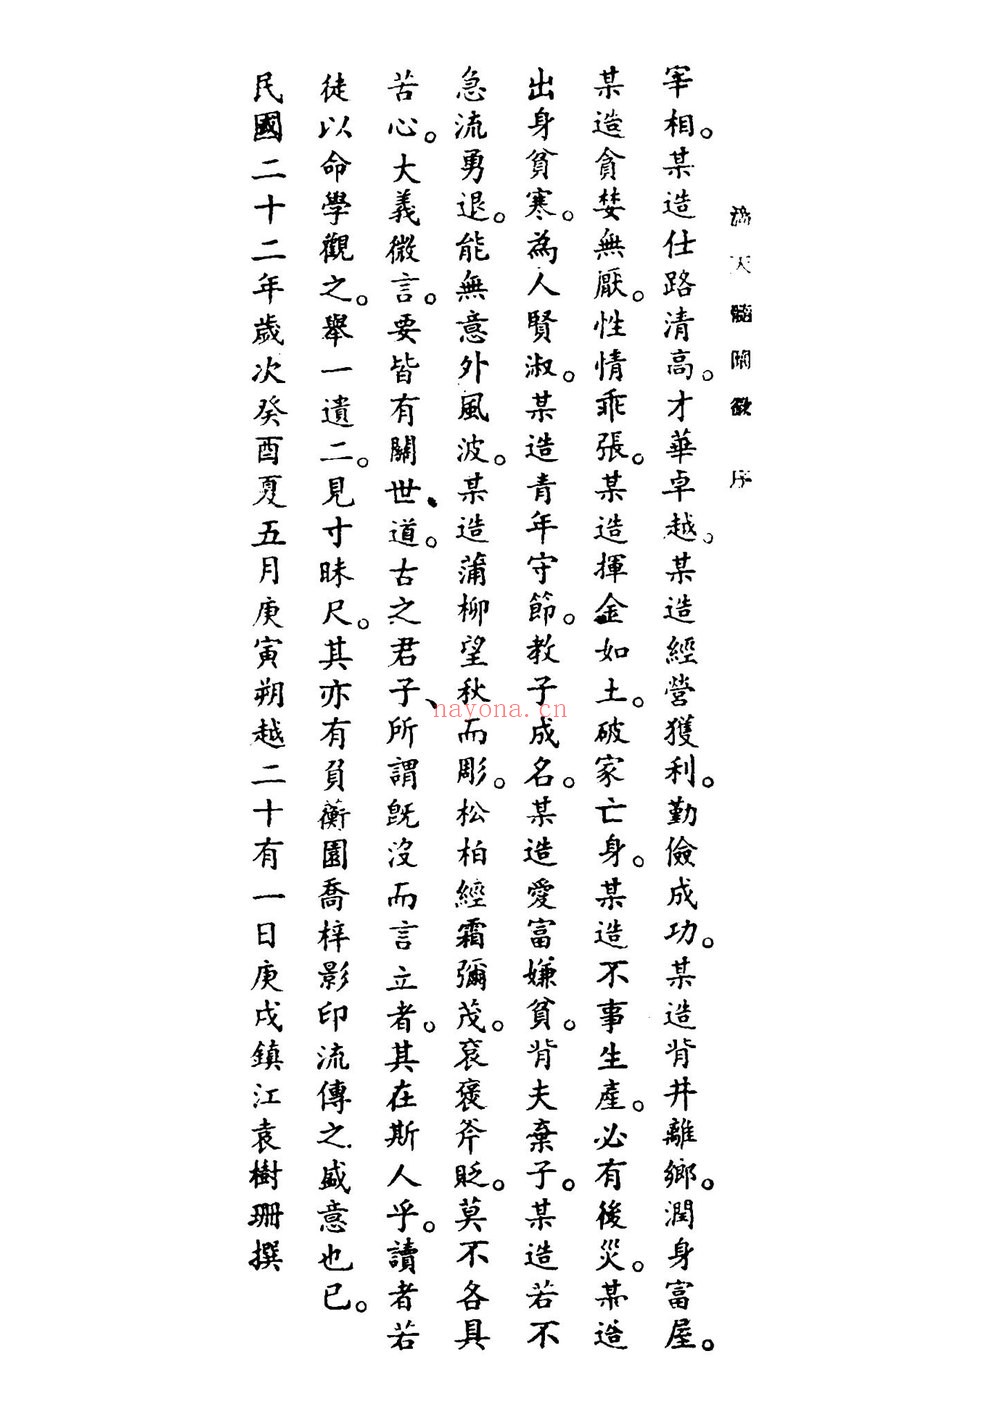 滴天髓闡微 序
宰相。某造仕路清高。才華卓越。某造經營獲利。勤儉成功。某造背井離鄉。潤身富屋。
某造貪婪無厭。性情乖張。某造揮金如土。破家亡身。某造不事生產。必有後災。某造
出身貧寒。為人賢淑。某造青年守節。教子成名。某造愛富嫌貧。背夫棄子。某造若不
急流勇退。能無意外風波。某造蒲柳望秋而彫。松柏經霜彌茂。袞褒斧貶。莫不各具
苦心。大義微言。要皆有關世、道。古之君子、所謂旣沒而言立者。其在斯人乎。讀者若
徒以命學觀之。舉一遺二。見寸昧尺。其亦有負蘅園喬梓影印流傳之盛意也已。
民國二十二年歲次癸酉夏五月庚寅朔越二十有一日庚戌鎮江袁樹珊撰
nayona.cn